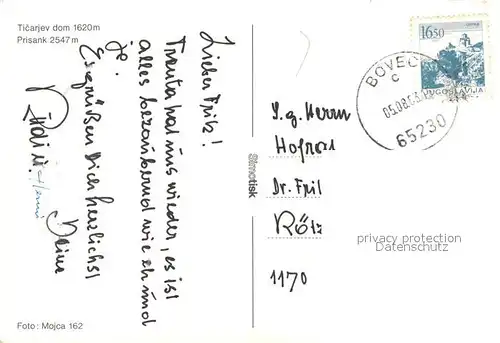 Tičarjev dom 1620 m
Prisank 2547 m
Lieber Fritz!
Trenta hat uns wieder, es ist
alles bezaubernd wie eh und
je.
Es grüßen Dich herzlichst
Deine
Foto: Mojca 162
Simotisk
S. g. Herrn
Hofrat
Dr.
1170
16,50
JUGOSLAVIJA
BOVEC
C
65230
privacy protection
Datenschutz